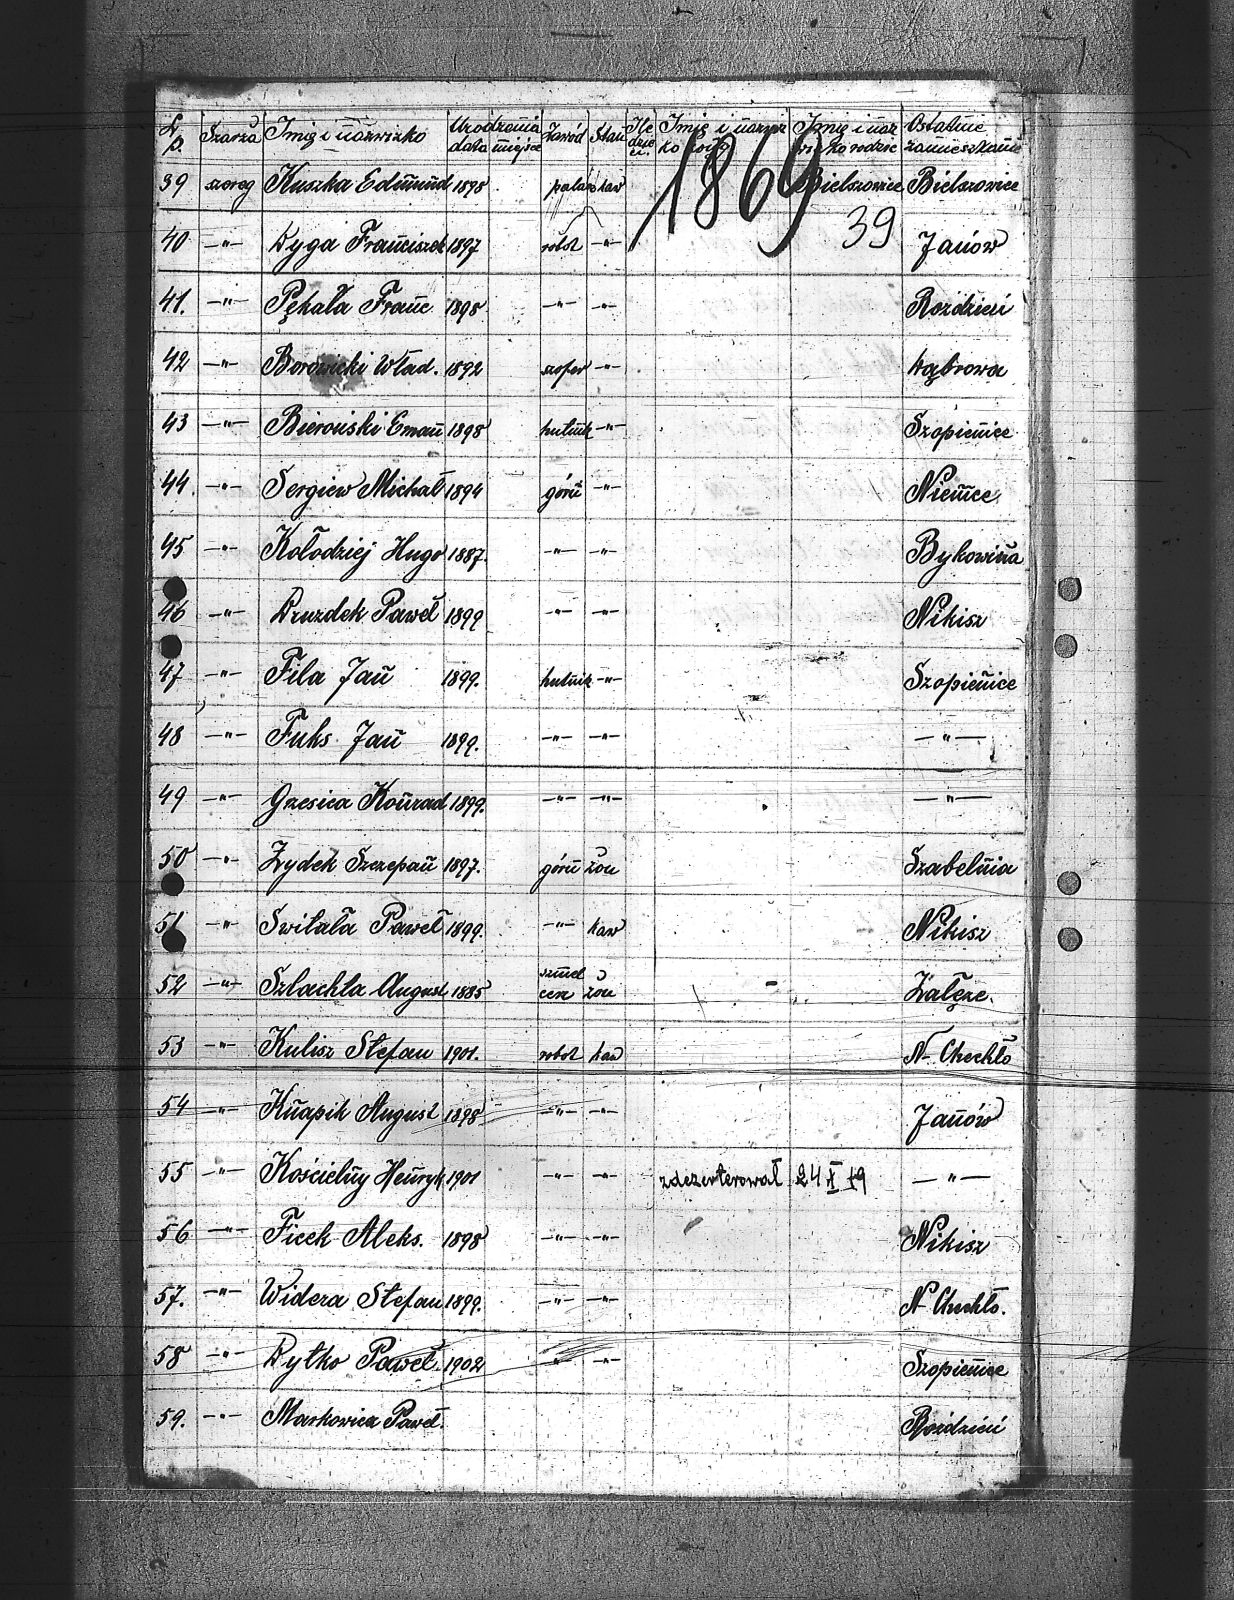 L. p. Szarża Imię i nazwizko Urodzenia data miejsce Zawód Stan Ile dzieci. Imię i nazwizko Ostatnie zamieszkanie
1869
39 szereg Kuszka Edmund 1898 palacz kaw Bielszowice Bielszowice
39
40 -"- Dyga Franciszek 1897 robot -"- Janów
41. -"- Pękała Franc. 1898 -"- -"- Rozdzień
42 -"- Borowicki Wład. 1892 szofer -"- Dąbrowa
43 -"- Bieroński Eman 1898 hutnik -"- Szopienice
44. -"- Sergiew Michał 1894 górn -"- Niemce
45 -"- Kołodziej Hugo 1887. -"- -"- Bykowina
46 -"- Druzdek Paweł 1899 -"- -"- Nikisz
47 -"- Fila Jan 1899. hutnik -"- Szopienice
48 -"- Fuks Jan 1899. -"- -"- -"-
49 -"- Grzesica Konrad 1899. -"- -"- -"-
50 -"- Zydek Szczepan 1897. górn żon Szabelnia
51 -"- Switała Paweł 1899. -"- kaw Nikisz
52 -"- Szlachta August 1885 szmelcerz żon Załęże.
53 -"- Kulisz Stefan 1901. robot kaw N- Chechło
54 -"- Knapik August 1898 -"- -"- Janów
55 -"- Kościelny Henryk 1901 -"- -"- zdezerterował 24 X 19 -"-
56 -"- Ficek Aleks. 1898 -"- -"- Nikisz
57. -"- Widera Stefan 1899. -"- -"- N- Chechło.
58 -"- Dytko Paweł. 1902 -"- -"- Szopienice
59. -"- Markowicz Paweł. Rozdzień